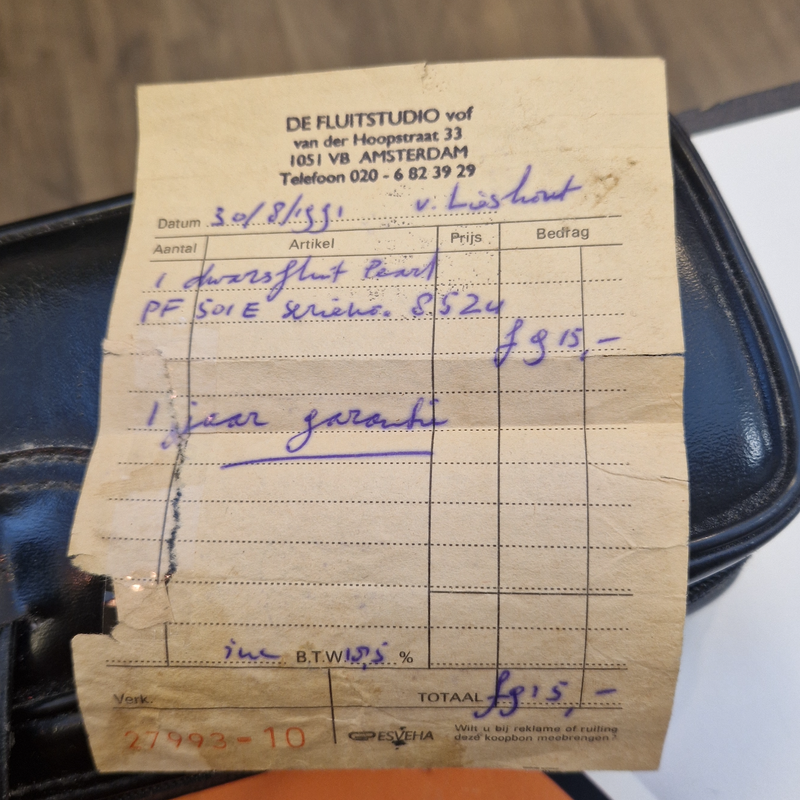 DE FLUITSTUDIO vof
van der Hoopstraat 33
1051 VB AMSTERDAM
Telefoon 020 - 6 82 39 29
Datum 30/8/1991 v. Lieshout
Aantal Artikel Prijs Bedrag
1 dwarsfluit Pearl
PF 501E serieno. 8524
f 915,-
1 jaar garantie
inc B.T.W. %
Verk. TOTAAL f 915,-
27993-10 ESVEHA Wilt u bij reklame of ruiling
deze koopbon meebrengen?